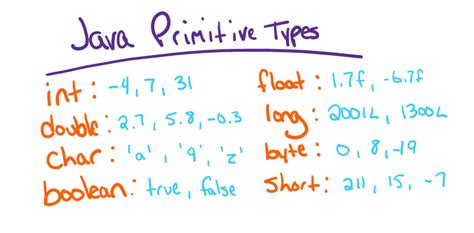 Java Primitive Types
int: -4, 7, 31
double: 2.7, 5.8, -0.3
char: 'a', '9', 'z'
boolean: true, false
float: 1.7f, -6.7f
long: 2001L, 1300L
byte: 0, 8, -19
short: 211, 15, -7